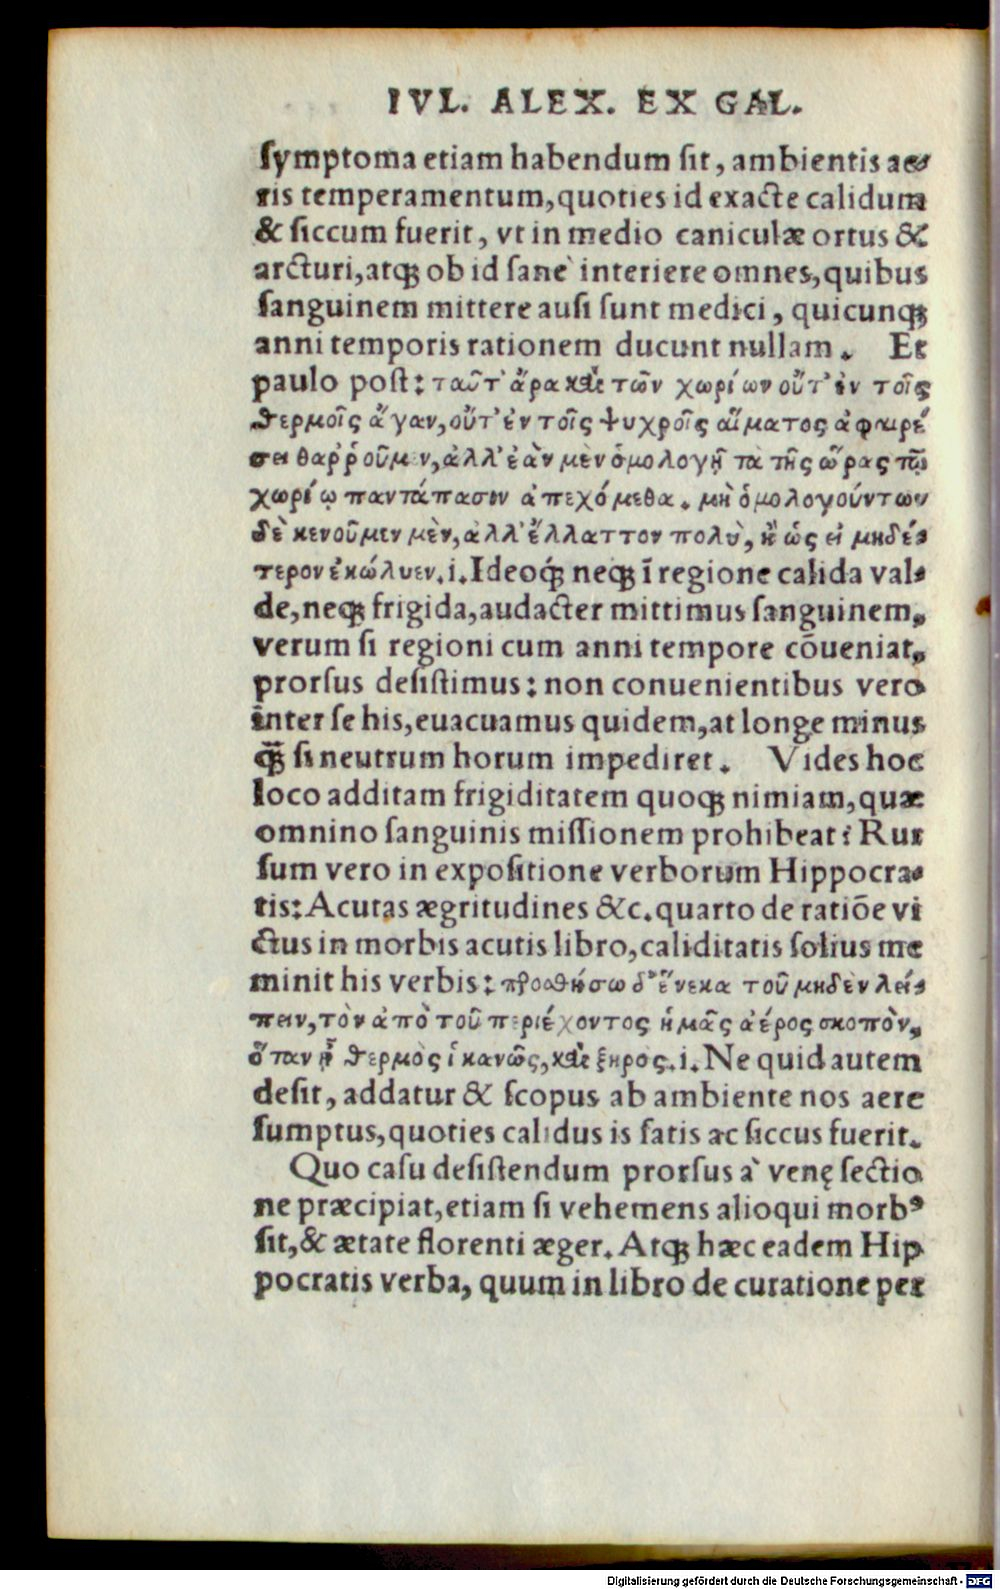 IVL. ALEX. EX GAL.
symptoma etiam habendum sit, ambientis ae-
ris temperamentum, quoties id exacte calidum
& siccum fuerit, vt in medio caniculæ ortus &
arcturi, atqꝫ ob id sanè interiere omnes, quibus
sanguinem mittere ausi sunt medici, quicunqꝫ
anni temporis rationem ducunt nullam. Et
paulo post: ταῦτ᾽ ἄρα καὶ τῶν χωρίων οὔτ᾽ ἐν τοῖς
θερμοῖς ἄγαν, οὔτ᾽ ἐν τοῖς ψυχροῖς αἵματος ἀφαιρέ
σει θαῤῥοῦμεν, ἀλλ᾽ ἐὰν μὲν ὁμολογῇ τὰ τῆς ὥρας τῷ
χωρίῳ παντάπασιν ἀπεχόμεθα. μὴ ὁμολογούντων
δὲ κενοῦμεν μὲν, ἀλλ᾽ ἔλλαττον πολὺ, ἢ ὡς εἰ μηδέ-
τερον ἐκώλυεν. i. Ideoqꝫ neqꝫ ī regione calida val-
de, neqꝫ frigida, audacter mittimus sanguinem,
verum si regioni cum anni tempore cōueniat,
prorsus desistimus: non conuenientibus vero
inter se his, euacuamus quidem, at longe minus
q̄ꝫ si neutrum horum impediret. Vides hoc
loco additam frigiditatem quoqꝫ nimiam, quæ
omnino sanguinis missionem prohibeat? Rur
sum vero in expositione verborum Hippocra-
tis: Acutas ægritudines &c. quarto de ratiōe vi
ctus in morbis acutis libro, caliditatis solius me
minit his verbis: προσθήσω δ᾽ ἕνεκα τοῦ μηδὲν λεί-
πειν, τὸν ἀπὸ τοῦ περιέχοντος ἡμᾶς ἀέρος σκοπὸν,
ὅταν ᾖ θερμὸς ἱκανῶς, καὶ ξηρος. i. Ne quid autem
desit, addatur & scopus ab ambiente nos aere
sumptus, quoties calidus is satis ac siccus fuerit.
Quo casu desistendum prorsus à venę sectio
ne præcipiat, etiam si vehemens alioqui morbꝰ
sit, & ætate florenti æger. Atqꝫ hæc eadem Hip
pocratis verba, quum in libro de curatione per
Digitalisierung gefördert durch die Deutsche Forschungsgemeinschaft - DFG